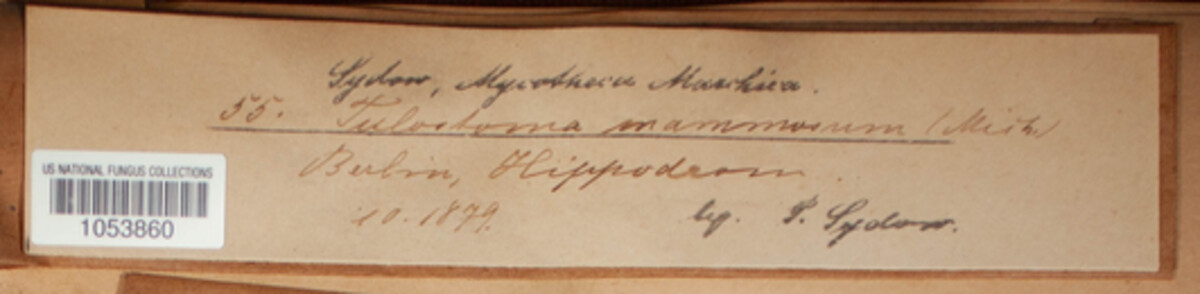 Sydow, Mycotheca Marchica.
55. Tulostoma mammosum (Mich.)
Berlin, Hippodrom.
10. 1879.
leg. P. Sydow.
US NATIONAL FUNGUS COLLECTIONS
1053860